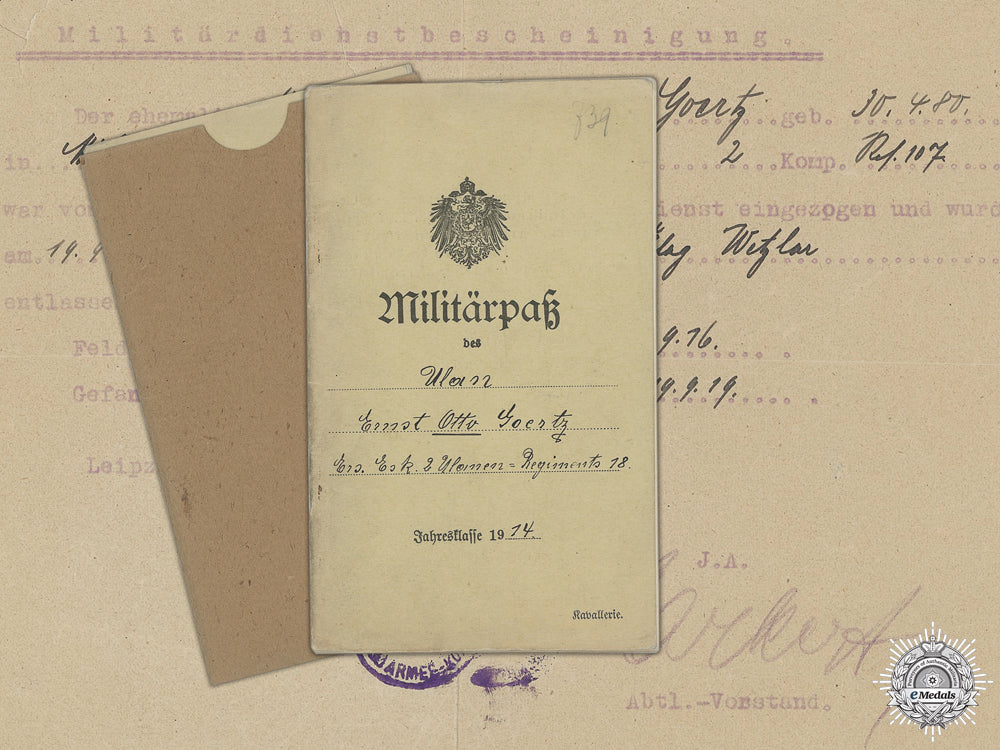 Militärdienstbescheinigung.
Goertz geb. 30.4.80.
in 2 Komp. Ref. 107
war ienst eingezogen und wurd
am 19.9 Wetzlar
entlasse
Feld 9.16.
Gefan 19.9.19.
Leipz
J.A.
Abtl.-Vorstand.
ARMEE-KO
839.
Militärpaß
des
Ulan
Ernst Otto Goertz
Ers. Esk. 2 Ulanen=Regiments 18.
Jahresklasse 1914.
Kavallerie.
eMedals